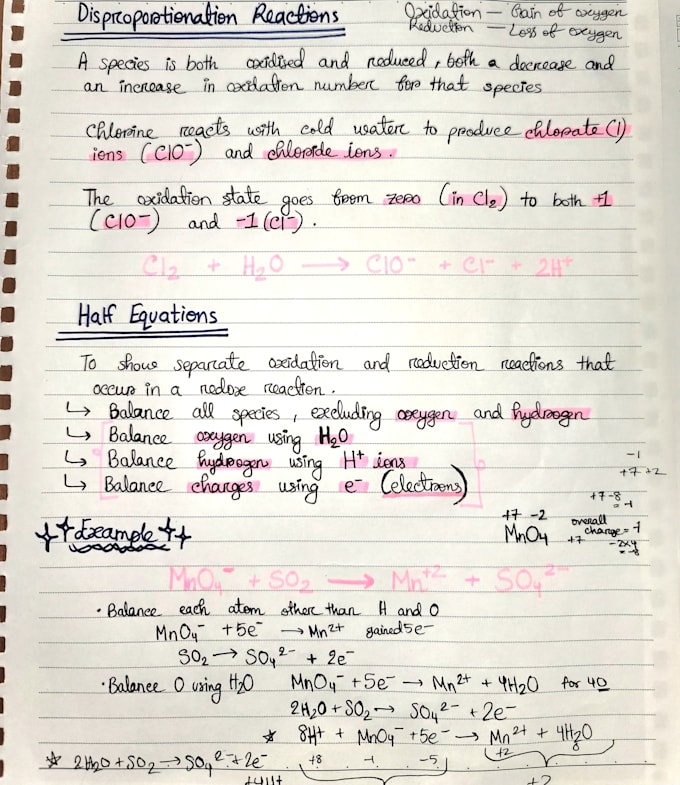 Disproportionation Reactions
Oxidation — Gain of oxygen
Reduction — Loss of oxygen
A species is both oxidised and reduced, both a decrease and
an increase in oxidation number for that species
Chlorine reacts with cold water to produce chlorate (I)
ions (ClO⁻) and chloride ions.
The oxidation state goes from zero (in Cl₂) to both +1
(ClO⁻) and -1 (Cl⁻).
Cl₂ + H₂O → ClO⁻ + Cl⁻ + 2H⁺
Half Equations
To show separate oxidation and reduction reactions that
occur in a redox reaction.
↳ Balance all species, excluding oxygen and hydrogen
↳ Balance oxygen using H₂O
↳ Balance hydrogen using H⁺ ions
↳ Balance charges using e⁻ (electrons)
-1
+7 +2
+7-8
= -1
Example
+7 -2
MnO₄
overall
charge = -1
+7
-2x4
= -8
MnO₄⁻ + SO₂ → Mn⁺² + SO₄²⁻
· Balance each atom other than H and O
MnO₄⁻ + 5e⁻ → Mn²⁺ gained 5e⁻
SO₂ → SO₄²⁻ + 2e⁻
· Balance O using H₂O MnO₄⁻ + 5e⁻ → Mn²⁺ + 4H₂O for 4O
2H₂O + SO₂ → SO₄²⁻ + 2e⁻
☆ 8H⁺ + MnO₄⁻ + 5e⁻ → Mn²⁺ + 4H₂O
☆ 2H₂O + SO₂ → SO₄²⁻ + 2e⁻
+8 -1 -5
+2
8
+4H+
+2